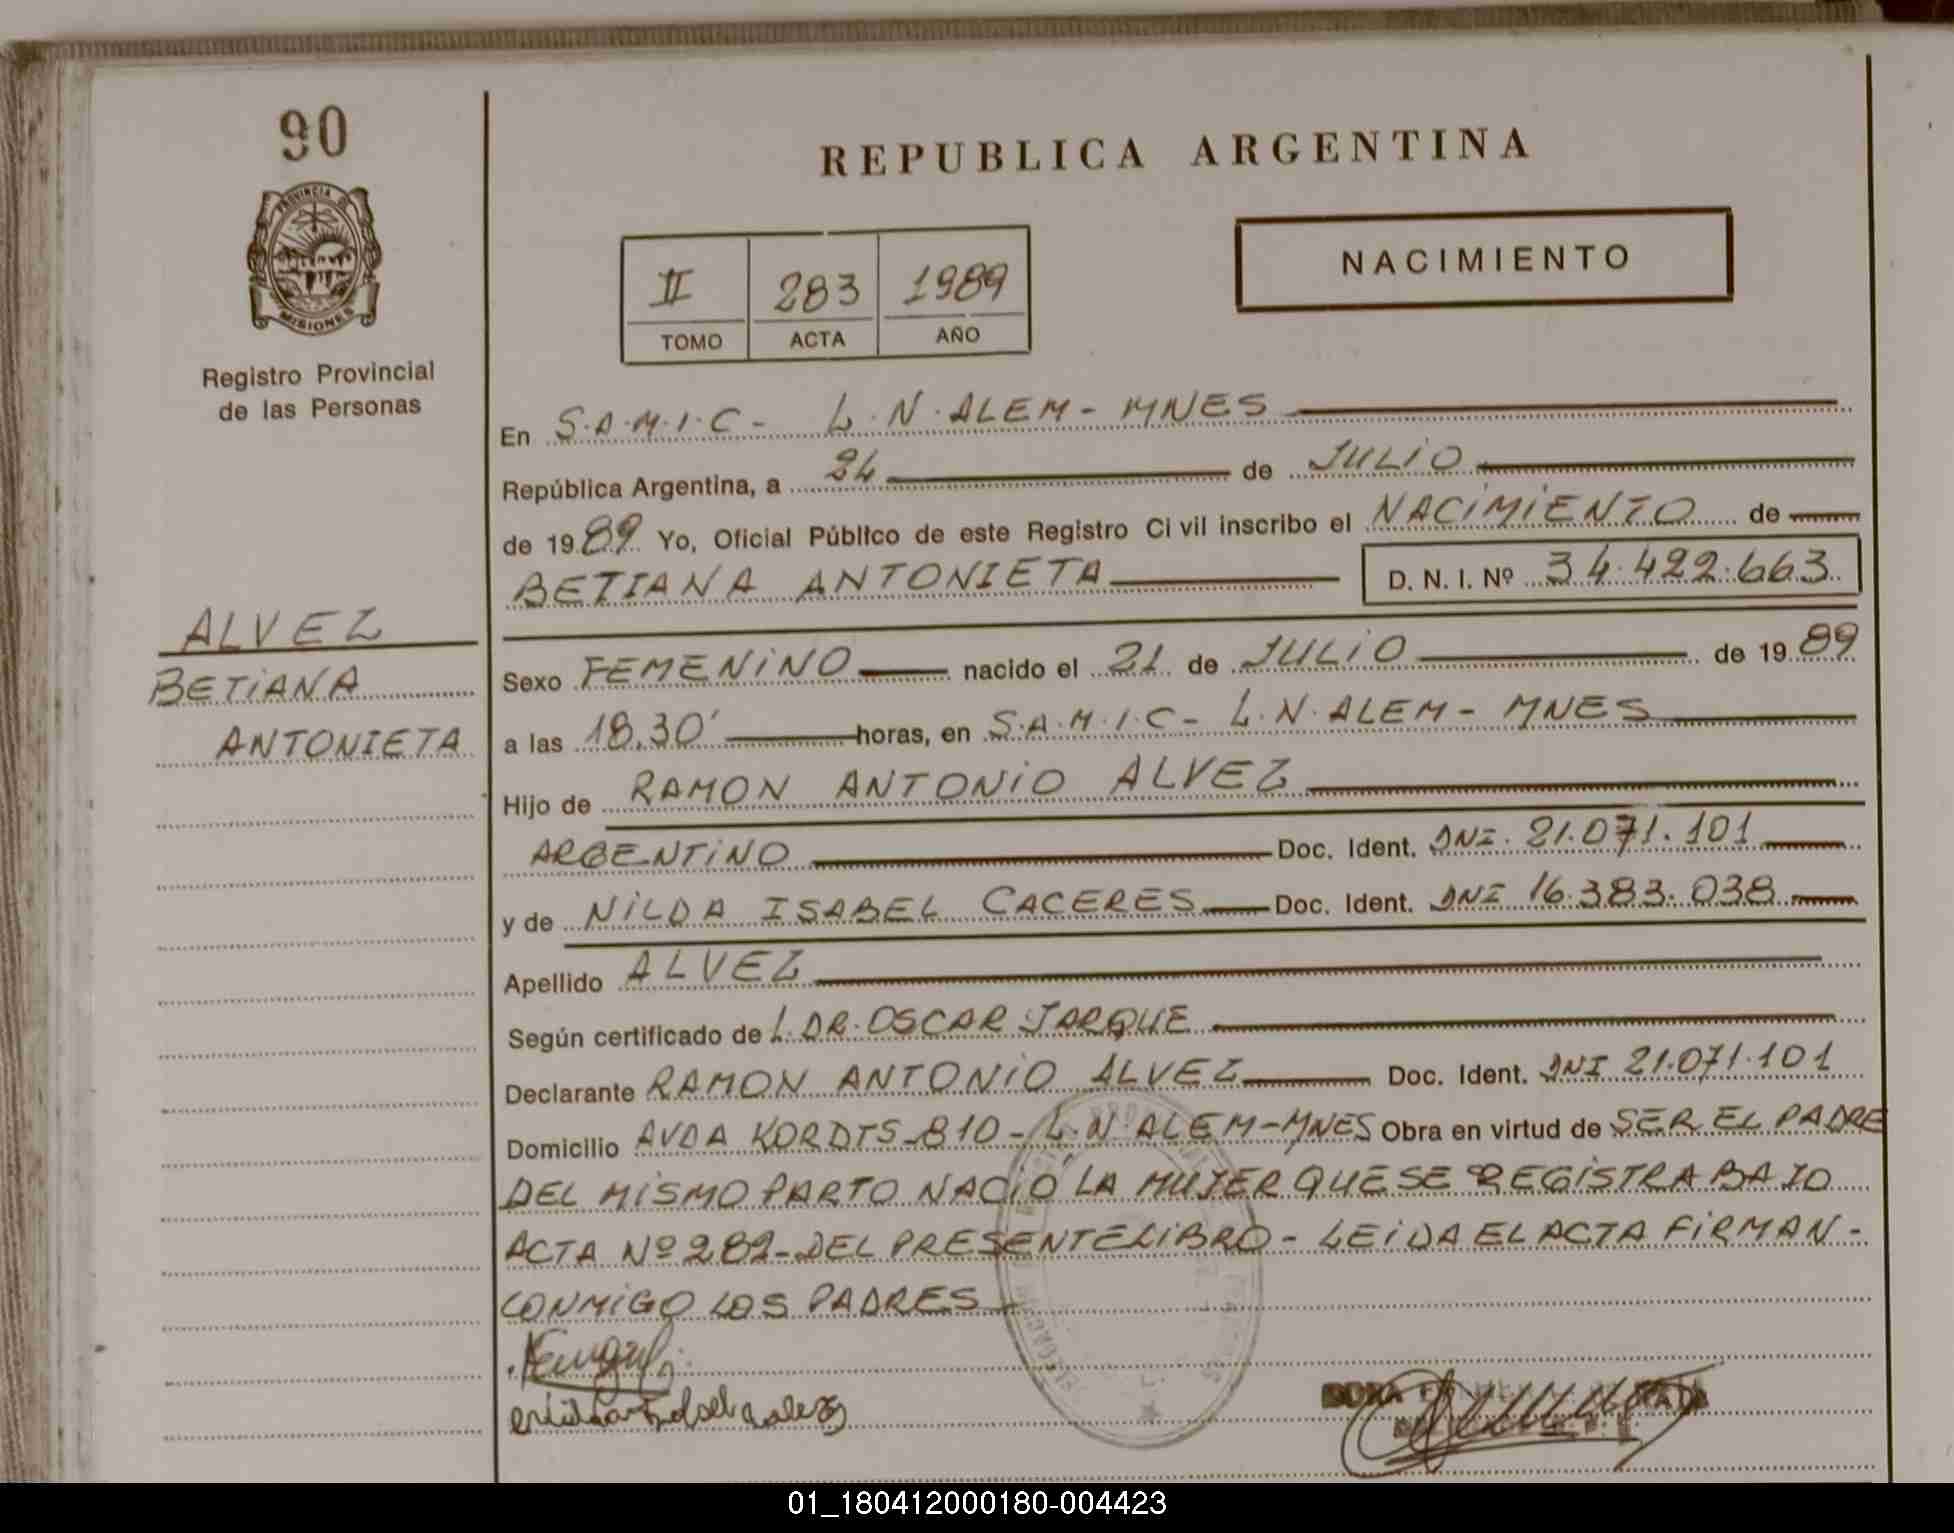 90
PROVINCIA DE
MISIONES
Registro Provincial
de las Personas
ALVEZ
BETIANA
ANTONIETA
REPUBLICA ARGENTINA
II 283 1989
TOMO ACTA AÑO
NACIMIENTO
En S.A.M.I.C- L.N.ALEM- MNES
República Argentina, a 24 de JULIO
de 1989 Yo, Oficial Público de este Registro Civil inscribo el NACIMIENTO de
BETIANA ANTONIETA D. N. I. Nº 34.422.663
Sexo FEMENINO nacido el 21 de JULIO de 1989
a las 18,30' horas, en S.A.M.I.C- L.N.ALEM- MNES
Hijo de RAMON ANTONIO ALVEZ
ARGENTINO Doc. Ident. DNI. 21.071.101
y de NILDA ISABEL CACERES Doc. Ident. DNI 16.383.038
Apellido ALVEZ
Según certificado de L.DR.OSCAR JARQUE
Declarante RAMON ANTONIO ALVEZ Doc. Ident. DNI 21.071.101
Domicilio AVDA KORDTS-810-L.N.ALEM-MNES Obra en virtud de SER EL PADRE
DEL MISMO PARTO NACIO LA MUJER QUE SE REGISTRA BAJO
ACTA Nº 282-DEL PRESENTE LIBRO- LEIDA EL ACTA FIRMAN-
CONMIGO LOS PADRES-
01_180412000180-004423